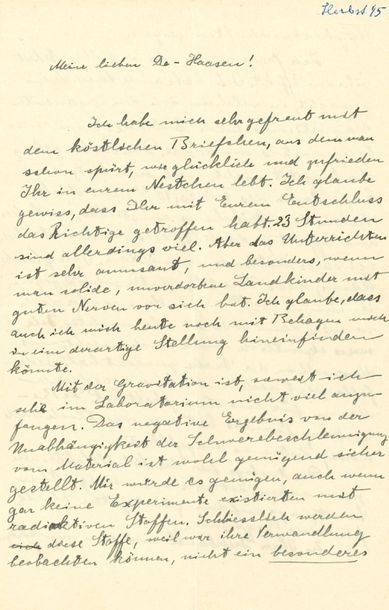 Herbst 15
Meine lieben De-Haasen!
Ich habe mich sehr gefreut mit
dem köstlichen Briefchen, aus dem man
schon spürt, wie glücklich und zufrieden
Ihr in eurem Nestchen lebt. Ich glaube
gewiss, dass Ihr mit Eurem Entschluss
das Richtige getroffen habt. 23 Stunden
sind allerdings viel. Aber das Unterrichten
ist sehr amusant, und besonders, wenn
man solide, unverdorbene Landkinder mit
guten Nerven vor sich hat. Ich glaube, dass
auch ich mich heute noch mit Behagen
in eine derartige Stellung hineinfinden
könnte.
Mit der Gravitation ist, soweit ich
sehe im Laboratorium nicht viel anzu-
fangen. Das negative Ergebnis von der
Unabhängigkeit der Schwerebeschleunigung
vom Material ist wohl genügend sicher
gestellt. Mir würde es genügen, auch wenn
gar keine Experimente existierten mit
radioaktiven Stoffen. Schliesslich werden
diese Stoffe, weil wir ihre Verwandlung
beobachten können, nicht ein besonderes